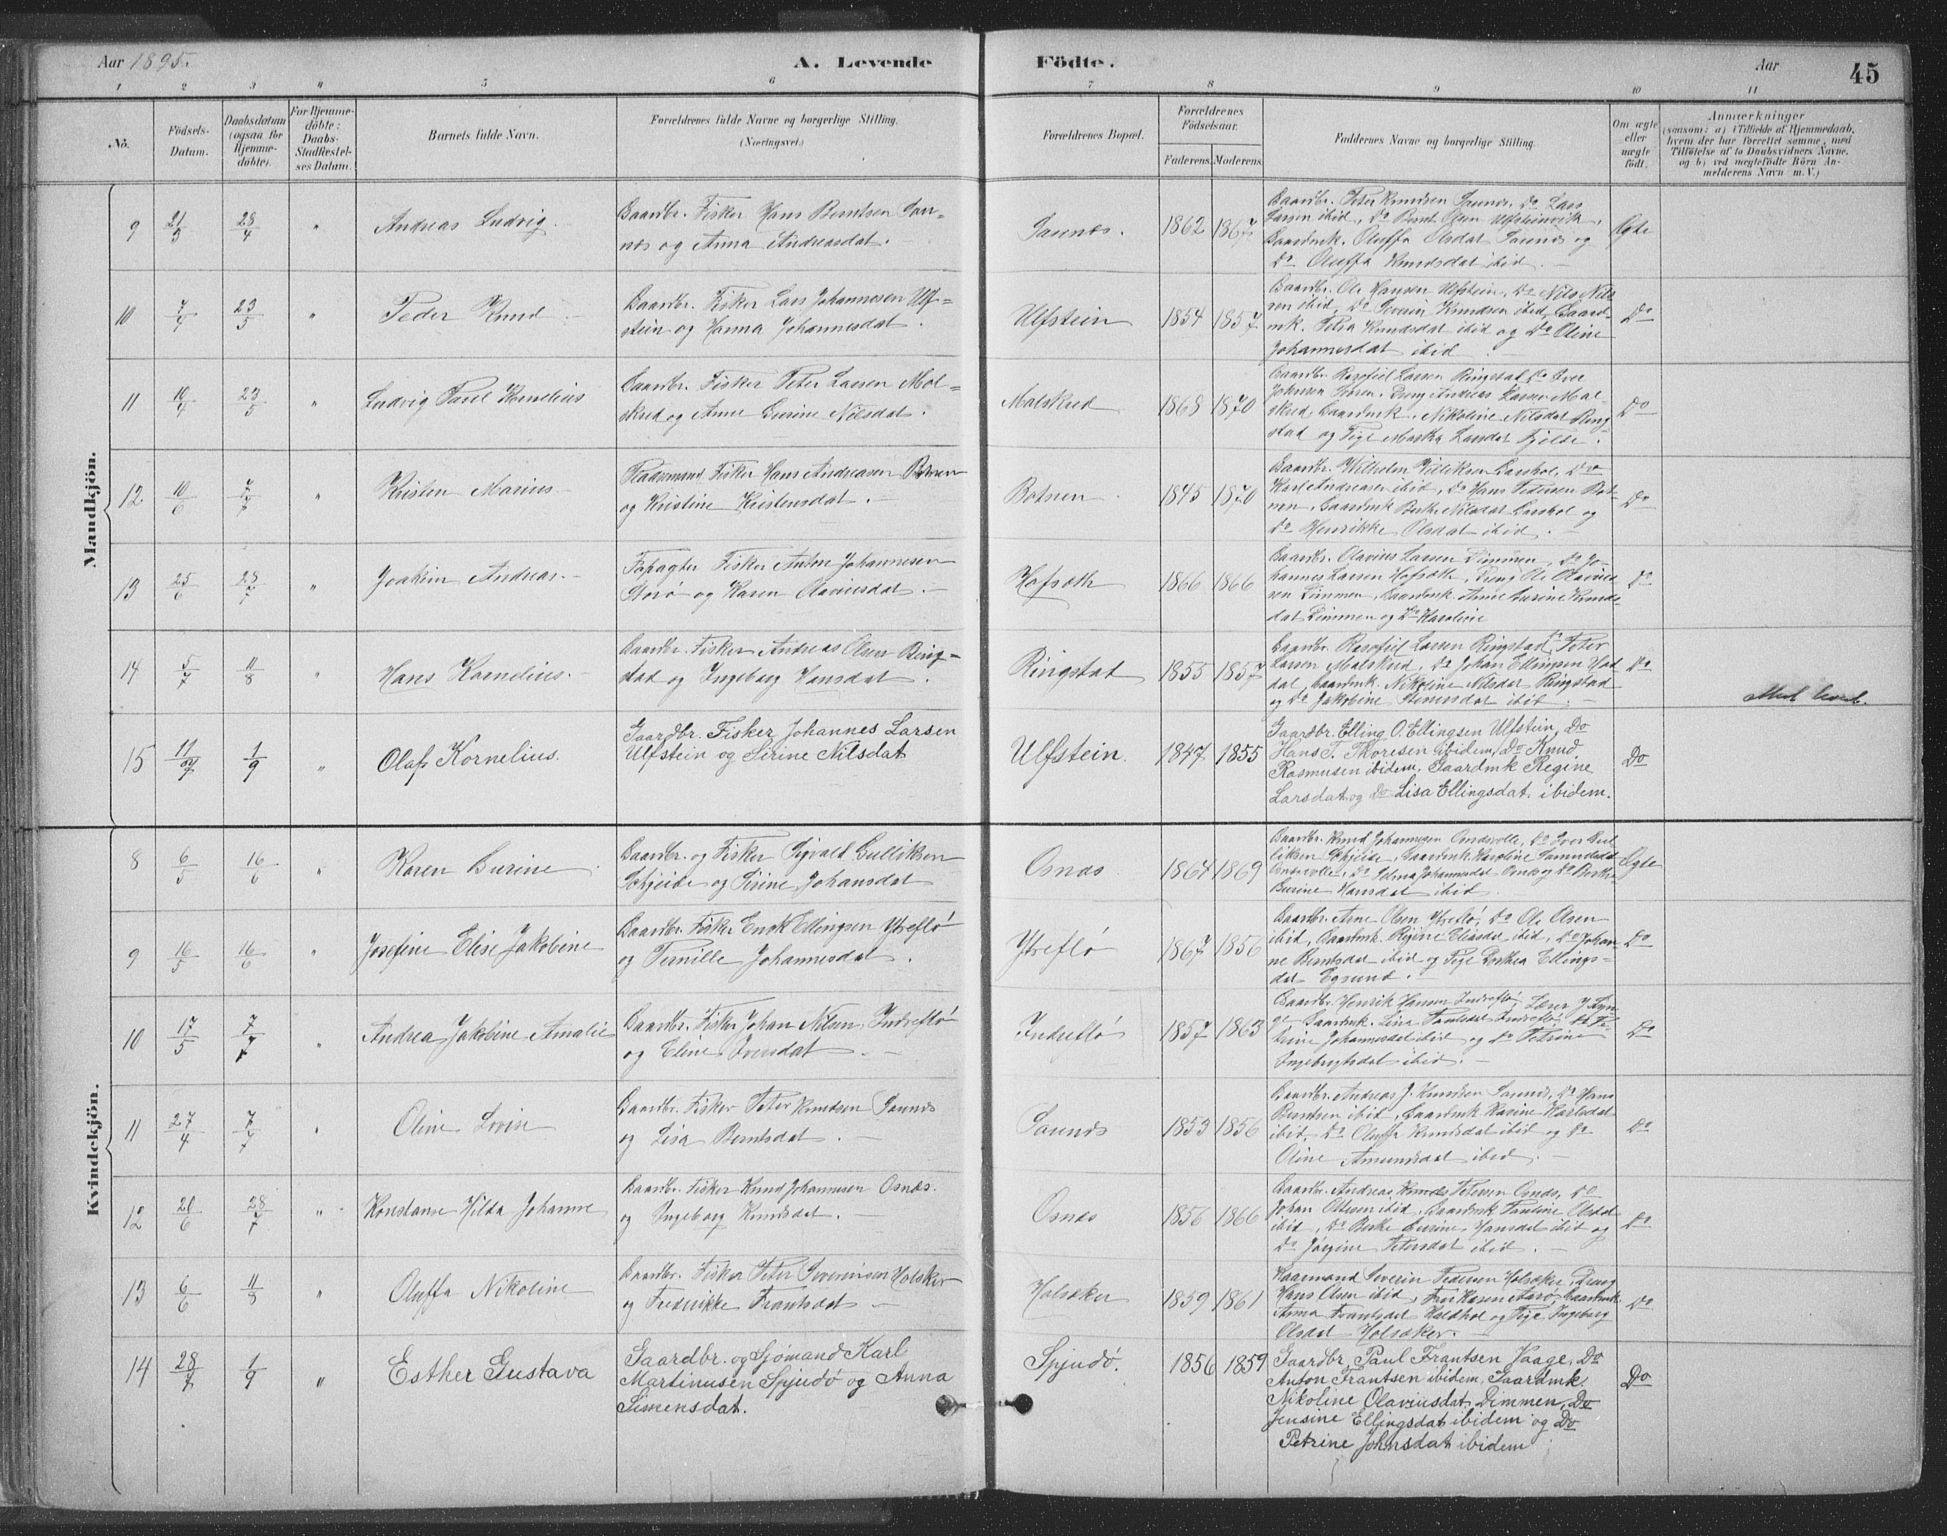 Aar 1895.
A. Levende Födte.
Aar
45
1 2 3 4 5 6 7 8 9 10 11
No.
Födsels-Datum.
Daabsdatum (ogsaa for Hjemme-döbte).
For Hjemme-döbte: Daabs-Stadfæstel-ses Datum.
Barnets fulde Navn.
Forældrenes fulde Navne og borgerlige Stilling. (Næringsvei.)
Forældrenes Bopæl.
Forældrenes Födselsaar.
Faderens. Moderens.
Faddernes Navne og borgerlige Stilling.
Om ægte eller uægte födt.
Anmærkninger
(saasom: a) i Tilfælde af Hjemmedaab, hvem der har forrettet samme, med Tilföielse af to Daabsvidners Navne, og b) ved uægtefödte Börn Anmelderens Navn m. V.)
Mandkjön.
9 21/3 28/4 " Andreas Ludvig. Gaardbr. Fisker Hans Berntsen Saunæs og Anna Andreasdat. Saunæs. 1862 1867 Gaardbr. Peter Knudsen Saunæs, Do Lars
Larsen ibid, Do Bernt Olsen Ulfsteinvik,
Gaardmk. Oluffa Olsdat Saunæs og
Do Oluffa Knudsdat ibid. Ægte
10 7/4 23/5 " Peder Knud Gaardbr. Fisker Lars Johannesen Ulfstein og Hanna Johannesdat. Ulfstein 1854 1857 Gaardbr. Ole Hansen Ulfstein, Do Nils Nilsen ibid, Do Severin Knudsen ibid, Gaardmk. Petra Knudsdat ibid og Do Oline
Johannesdat ibid. Do
11 10/4 23/5 " Ludvig Paul Kornelius Gaardbr. Fisker Peter Larsen Malskred og Anne Gurine Nilsdat. Malskred 1863 1870 Larsen Ringstad Do Iver
Johnsen, Dreng Andreas Larsen Malskred, Gaardmk. Nikoline Nilsdat Ringstad og Pige Larsdat Fjelde. Do
12 10/6 7/7 " Kristen Marius Pladsmand Fisker Hans Andreasen Botnen
og Kristine Kristensdat. Botnen 1845 1870 Gaardbr. Wilhelm, Do
Karl Andreasen ibid, Do Hans Pedersen Botnen, Gaardmk Nilsdat og
Do Henrikke Olsdat ibid. Do
13 25/6 28/7 " Joakim Andreas Fisker Anton Johannesen
Storø og Karen Olaviusdat. Hofsæth 1866 1866 Gaardbr. Olavius Larsen Dimmen, Do Johannes Larsen Hofsæth, Dreng Ole Olaviussen Dimmen, Gaardmk. Anne Gurine Knudsdat Dimmen og Do Karoline Do
14 5/7 11/8 " Hans Kornelius. Gaardbr. Fisker Andreas Olsen Ringstad og Ingeborg Hansdat. Ringstad 1855 1857 Gaardbr. Larsen Ringstad, Do Peter
Larsen Malskred, Do Johan Ellingsen Haddal, Gaardmk. Nikoline Nilsdat Ringstad
og Do Jakobine ibid. Do
15 11/7 1/9 " Olaf Kornelius. Gaardbr. Fisker Johannes Larsen
Ulfstein og Sirine Nilsdat Ulfstein. 1847 1855 Gaardbr. Elling O. Ellingsen Ulfstein, Do
Hans T. Thoresen ibidem, Do Knud
Rasmusen ibidem, Gaardmk Regine
Larsdat og Do Lisa Ellingsdat. ibidem. Do
Kvindekjön.
8 6/5 16/6 " Karen Gurine Gaardbr. og Fisker Sigvald Gulliksen
Skjeide og Sirine Johansdat Osnæs 1864 1869 Gaardbr. Knud Johannesen Osnæsvolle, Do Iver Gulliksen Skjeide, Gaardmk Karoline
Osnæsvolle, Do Johannesdat Osnæs og Do
Gurine Hansdat ibid. Ægte
9 16/5 16/6 " Josefine Elise Jakobine Gaardbr. Fisker Enok Ellingsen Ytreflø
og Pernille Johannesdat. Ytreflø 1867 1856 Gaardbr. Arne Olsen Ytreflø, Do Ole Olsen
ibid, Gaardmk. Regine Eliasdat ibid, Do Johanne Berntsdat ibid og Pige Dorthea Ellingsdat Egsund. Do
10 17/5 7/7 " Andrea Jakobine Amalie Gaardbr. Fisker Johan Nilsen Indreflø
og Eline Iversdat Indreflø 1857 1863 Gaardbr. Henrik Hansen Indreflø, Lærer
Gaardmk. Lina Indreflø,
Johannesdat ibid og Do Petrine
Ingebrigtsdat ibid. Do
11 27/4 7/7 " Oline Lovise Gaardbr. Fisker Peter Knudsen Saunæs
og Lisa Berntsdat. Saunæs 1853 1856 Gaardbr. Andreas J. Knudsen Saunæs, Do Hans
Berntsen ibid, Gaardmk Karlsdat
ibid, Do Oluffa Knudsdat ibid og Do
Oline Amundsdat ibid. Do
12 20/6 28/7 " Konstanse Hilda Johanne Gaardbr. Fisker Knud Johannesen Osnæs.
og Ingeborg Knudsdat. Osnæs 1856 1866 Gaardbr. Andreas Petersen Osnæs, Do
Johan Ottesen ibid, Gaardmk Olsdat
ibid, Do Gurine Hansdat ibid og
Do Jørgine Petersdat ibid. Do
13 6/6 11/8 " Oluffa Nikoline Gaardbr. Fisker Peter Severinsen Holsæker
og Frederikke Frantsdat Holsæker 1859 1861 Kaarmand Severin Pedersen Holsæker, Dreng
Hans Olsen ibid, Gaardmk
Anna Frantsdat og Pige Ingeborg
Olsdat Holsæker. Do
14 28/7 1/9 " Esther Gustava Gaardbr. og Sjømand Karl
Martinusen Spjudø og Anna
Simensdat. Spjudø. 1856 1859 Gaardbr. Paul Frantsen Vaage, Do
Anton Frantsen ibidem, Gaardmk.
Nikoline Olaviusdat. Dimmen, Do
Jensine Ellingsdat ibidem og Do
Petrine Johnsdat ibidem Do